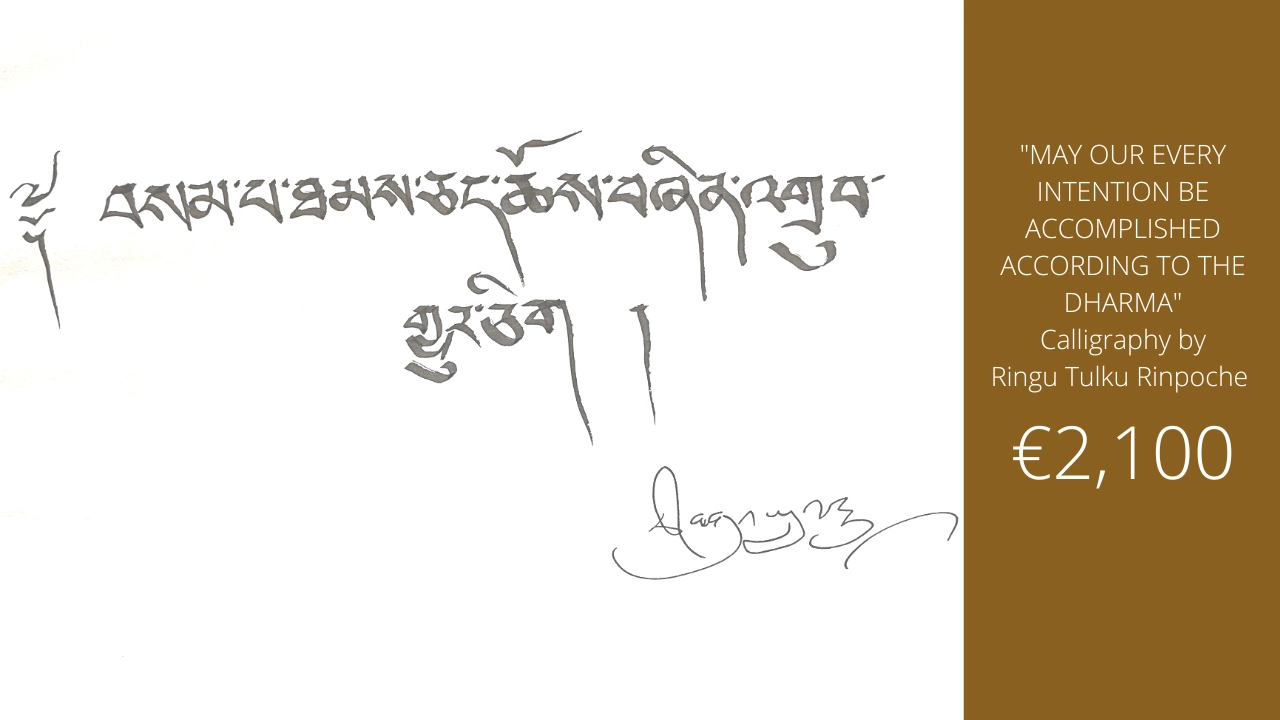 ༄༅། བསམ་པ་ཐམས་ཅད་ཆོས་བཞིན་འགྲུབ་
གྱུར་ཅིག །
"MAY OUR EVERY
INTENTION BE
ACCOMPLISHED
ACCORDING TO THE
DHARMA"
Calligraphy by
Ringu Tulku Rinpoche
€2,100